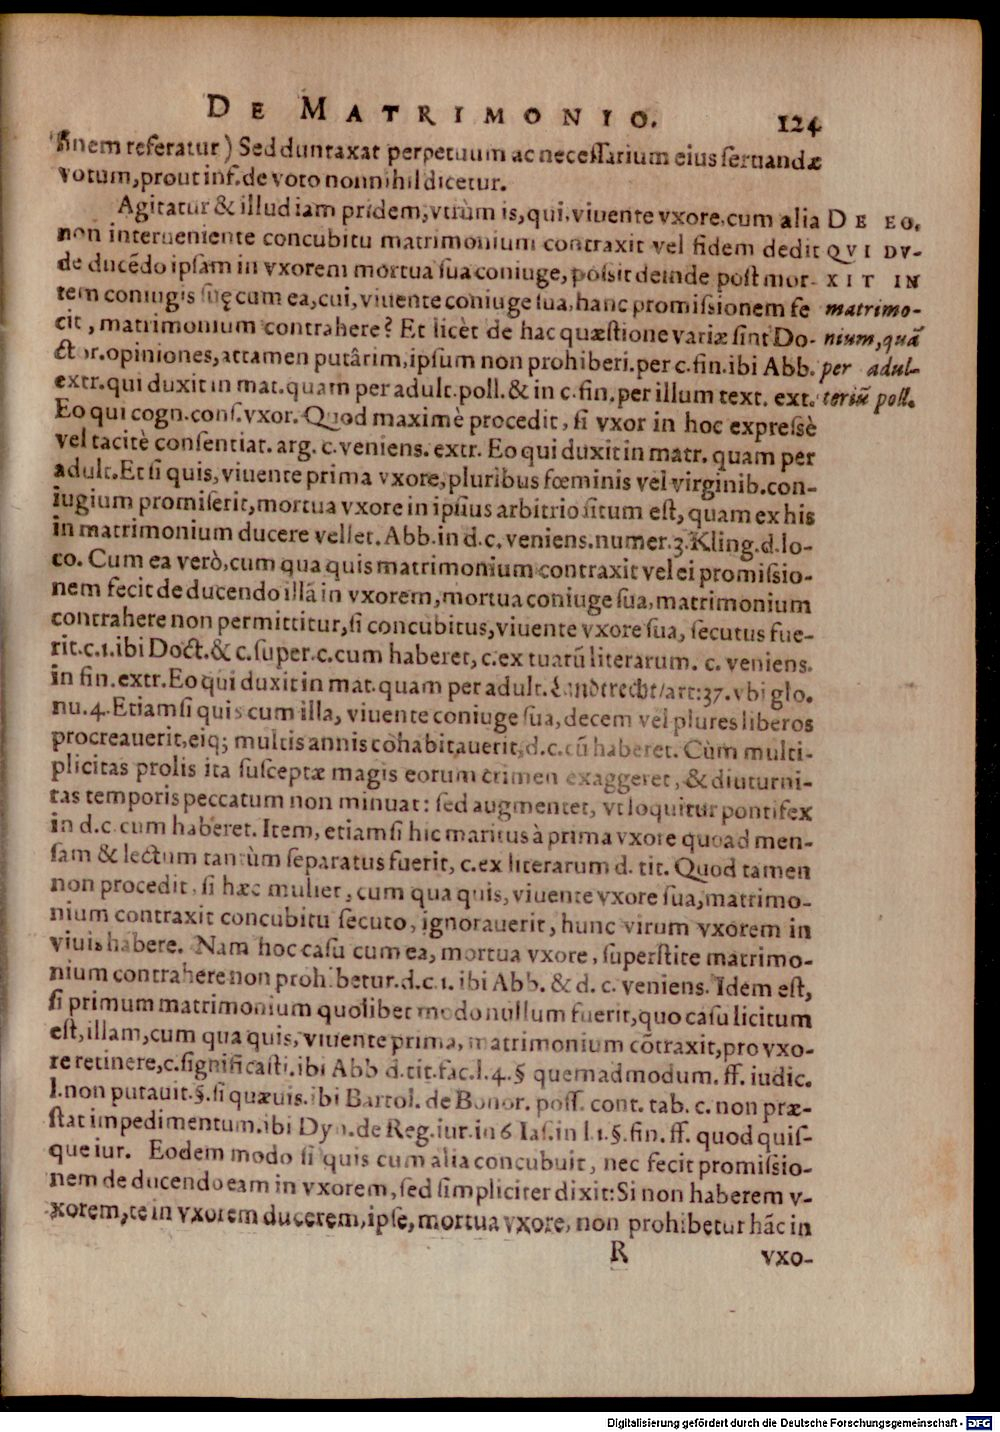 DE MATRIMONIO. 124
finem referatur) Sed duntaxat perpetuum ac necessarium eius seruandæ
votum, prout inf. de voto nonnihil dicetur.
Agitatur & illud iam pridem, vtrùm is, qui, viuente vxore, cum alia
non interueniente concubitu matrimonium contraxit vel fidem dedit
de ducẽdo ipsam in vxorem mortua sua coniuge, possit deinde post mor-
tem coniugis suę cum ea, cui, viuente coniuge sua, hanc promissionem fe
cit, matrimonium contrahere? Et licèt de hac quæstione variæ sint Do-
ctor. opiniones, attamen putârim, ipsum non prohiberi. per c. fin. ibi Abb.
extr. qui duxit in mat. quam per adult. poll. & in c. fin. per illum text. ext.
Eo qui cogn. cons. vxor. Quod maximè procedit, si vxor in hoc expressè
vel tacitè consentiat. arg. c. veniens. extr. Eo qui duxit in matr. quam per
adult. Et si quis, viuente prima vxore, pluribus fœminis vel virginib. con-
iugium promiserit, mortua vxore in ipsius arbitrio situm est, quam ex his
in matrimonium ducere vellet. Abb. in d. c. veniens. numer. 3. Kling. d. lo-
co. Cum ea verò, cum qua quis matrimonium contraxit vel ei promissio-
nem fecit de ducendo illã in vxorem, mortua coniuge sua, matrimonium
contrahere non permittitur, si concubitus, viuente vxore sua, secutus fue-
rit. c. 1. ibi Doct. & c. super. c. cum haberet, c. ex tuarũ literarum. c. veniens.
in fin. extr. Eo qui duxit in mat. quam per adult. Landtrecht/ art: 37. vbi glo.
nu. 4. Etiamsi quis cum illa, viuente coniuge sua, decem vel plures liberos
procreauerit, eiq; multis annis cohabitauerit, d. c. cũ haberet. Cùm multi-
plicitas prolis ita susceptæ magis eorum crimen exaggeret, & diuturni-
tas temporis peccatum non minuat: sed augmentet, vt loquitur pontifex
in d. c. cum haberet. Item, etiamsi hic maritus à prima vxore quoad men-
sam & lectum tantùm separatus fuerit, c. ex literarum d. tit. Quod tamen
non procedit, si hæc mulier, cum qua quis, viuente vxore sua, matrimo-
nium contraxit concubitu secuto, ignorauerit, hunc virum vxorem in
viuis habere. Nam hoc casu cum ea, mortua vxore, superstite matrimo-
nium contrahere non prohibetur. d. c. 1. ibi Abb. & d. c. veniens. Idem est,
si primum matrimonium quolibet modo nullum fuerit, quo casu licitum
est, illam, cum qua quis, viuente prima, matrimonium cõtraxit, pro vxo-
re retinere, c. significasti. ibi Abb d. tit. fac. l. 4. § quemadmodum. ff. iudic.
l. non putauit. §. si quæuis. ibi Bartol. de Bonor. poss. cont. tab. c. non præ-
stat impedimentum. ibi Dyn. de Reg. iur. in 6 Ias. in l. 1. §. fin. ff. quod quis-
que iur. Eodem modo si quis cum alia concubuit, nec fecit promissio-
nem de ducendo eam in vxorem, sed simpliciter dixit: Si non haberem v-
xorem, te in vxorem ducerem, ipse, mortua vxore, non prohibetur hãc in
R vxo-
DE EO,
QVI DV-
XIT IN
matrimo-
nium, quã
per adul-
teriũ poll.
Digitalisierung gefördert durch die Deutsche Forschungsgemeinschaft - DFG